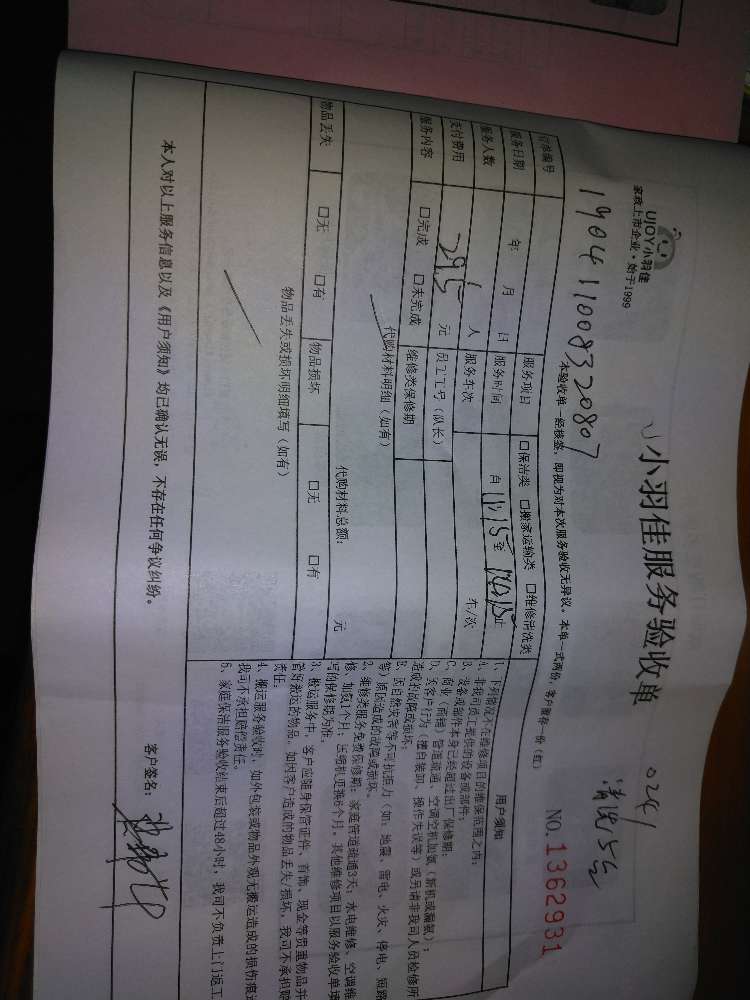 UJOY小羽佳
家政上市企业·始于1999
小羽佳服务验收单
0241
清洗5台
NO.1362931
190411008320807
本验收单一经核签，即视为对本次服务验收无异议。本单一式两份，客户留存一份（红）
订单编号
服务项目 □保洁类 □搬家运输类 □维修清洗类
服务日期 年 月 日 服务时间 自 至 止
服务人数 1 人 服务车次 车/次
支付费用 295 元 员工工号（队长）
服务内容 □完成 □未完成 维修类保修期
代购材料明细（如有）
代购材料总额： 元
物品丢失 □无 □有 物品损坏 □无 □有
物品丢失或损坏明细填写（如有）
用户须知
1、下列情况不在维修项目的维保范围之内：
A、非我司员工提供的设备或部件；
B、设备或部件本身已经超过出厂保修期；
C、商业（商铺）管道疏通、空调空机加氨（新机或漏氨）；
D、实客户行为（擅自装卸、操作失误等）或另请非我司人员检修所
造成的故障或损坏；
E、因自然灾害等不可抗拒力（如：地震、雷电、火灾、停电、短路
等）原因造成的故障或损坏。
2、维修类服务免费保修期：家庭管道疏通3天；水电维修、空调维
修、加氨1个月；压缩机更换6个月，其他维修项目以服务验收单填
写的保修期为准。
3、搬运服务中，客户应随身保管证件、首饰、现金等贵重物品并
管好搬运的物品。如因客户造成的物品丢失/损坏，我司不承担赔
责任。
4、搬运服务验收时，如外包装或物品外观无搬运造成的损伤痕迹
我司不承担赔偿责任。
5、家庭保洁服务验收结束后超过48小时，我司不负责上门返工
本人对以上服务信息以及《用户须知》均已确认无误，不存在任何争议纠纷。
客户签名：